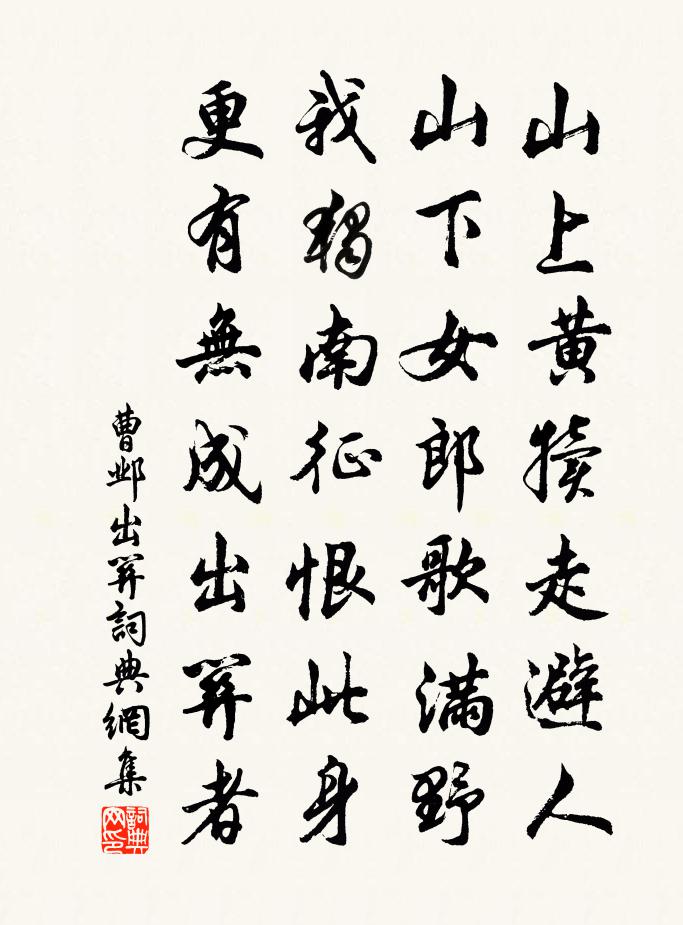 山上黃犢走避人
山下女郎歌滿野
我獨南征恨此身
更有無成出關者
曹鄴出關詞典網集
詞典网印